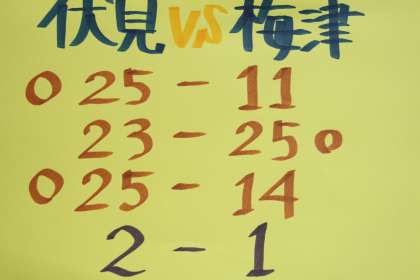 伏見 VS 梅津
○ 25 - 11
23 - 25 ○
○ 25 - 14
2 - 1